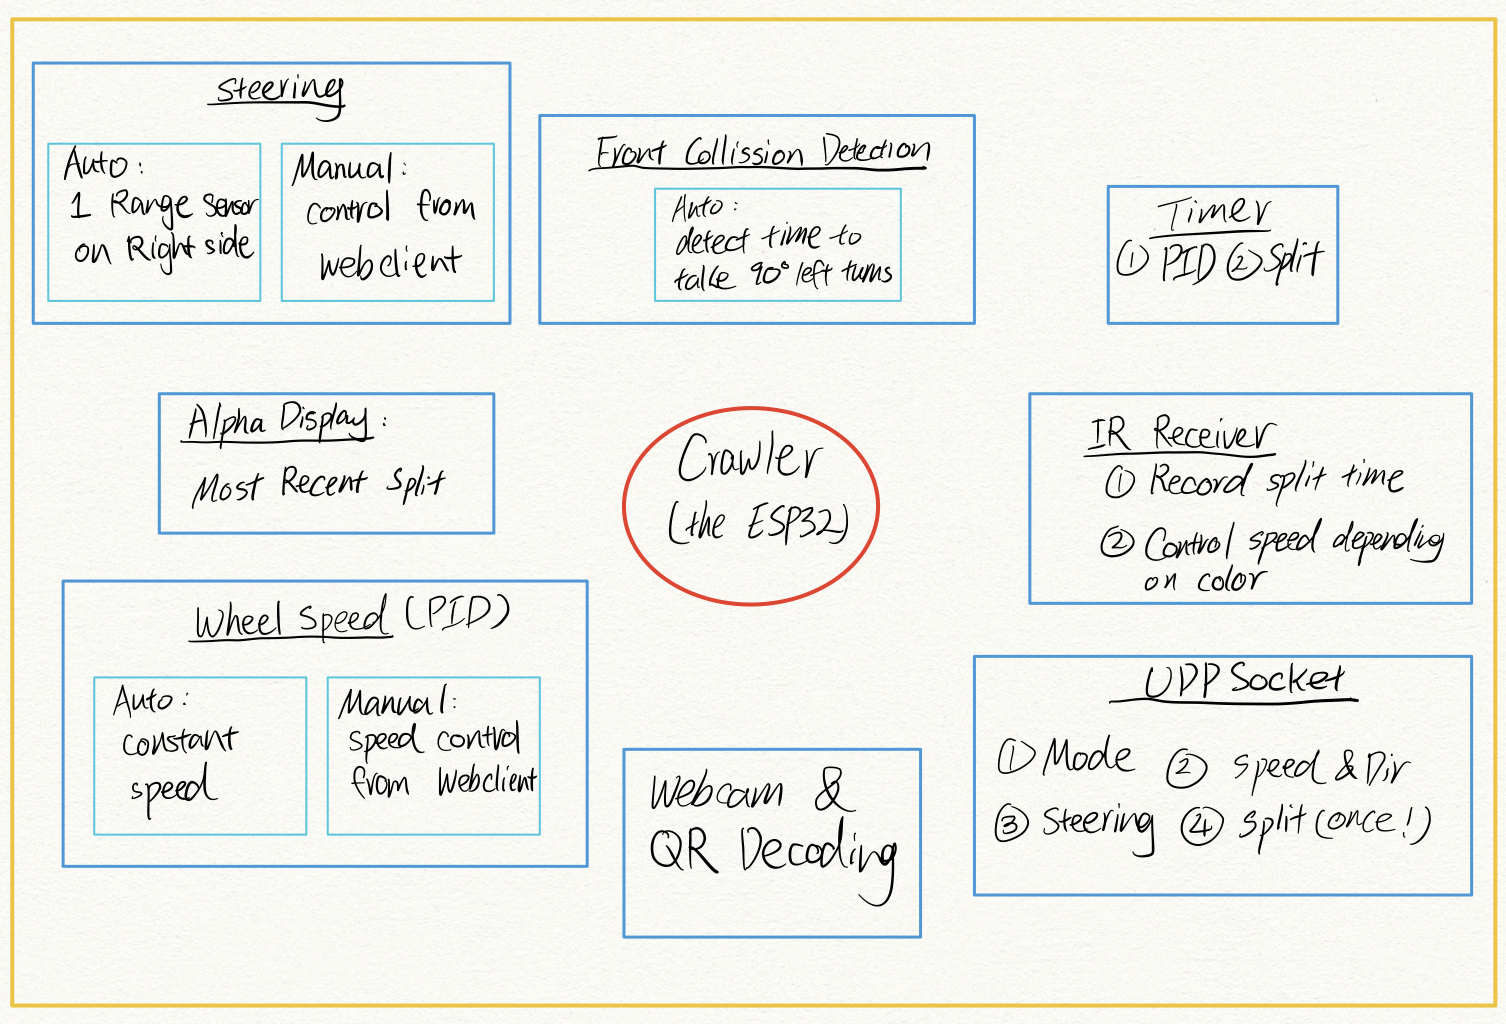 Steering
Auto:
1 Range Sensor
on Right side
Manual:
control from
webclient
Front Collission Detection
Auto:
detect time to
take 90° left turns
Timer
① PID ② Split
Alpha Display:
Most Recent Split
Crawler
(the ESP32)
IR Receiver
① Record split time
② Control speed depending
on color
Wheel Speed (PID)
Auto:
constant
speed
Manual:
speed control
from Webclient
Webcam &
QR Decoding
UDP Socket
① Mode ② Speed & Dir
③ Steering ④ Split (once!)